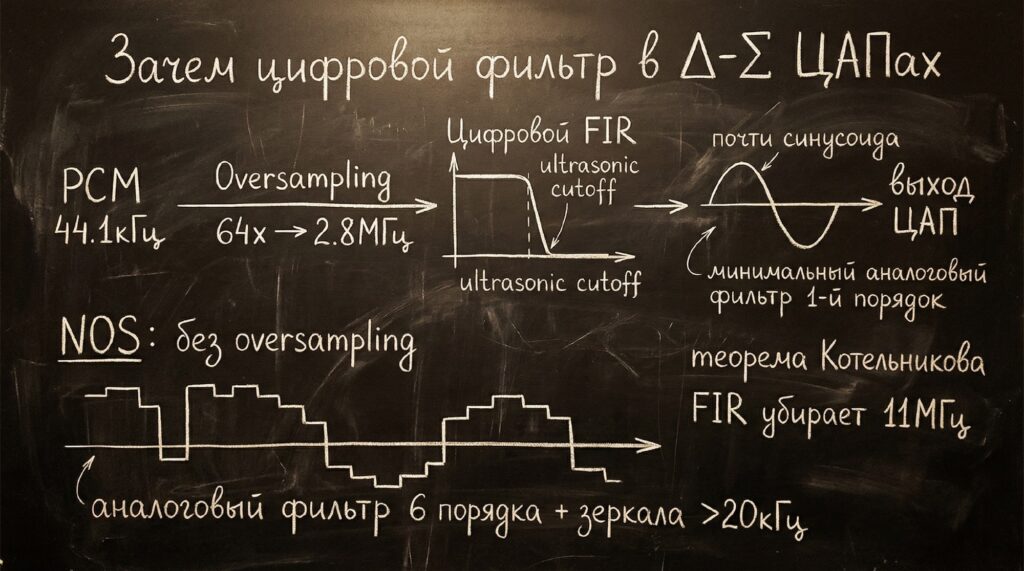 Зачем цифровой фильтр в Δ-Σ ЦАПах
PCM
44.1кГц
Oversampling
64x → 2.8МГц
Цифровой FIR
ultrasonic
cutoff
ultrasonic cutoff
почти синусоида
выход
ЦАП
минимальный аналоговый
фильтр 1-й порядок
NOS: без oversampling
аналоговый фильтр 6 порядка + зеркала >20кГц
теорема Котельникова
FIR убирает 11МГц